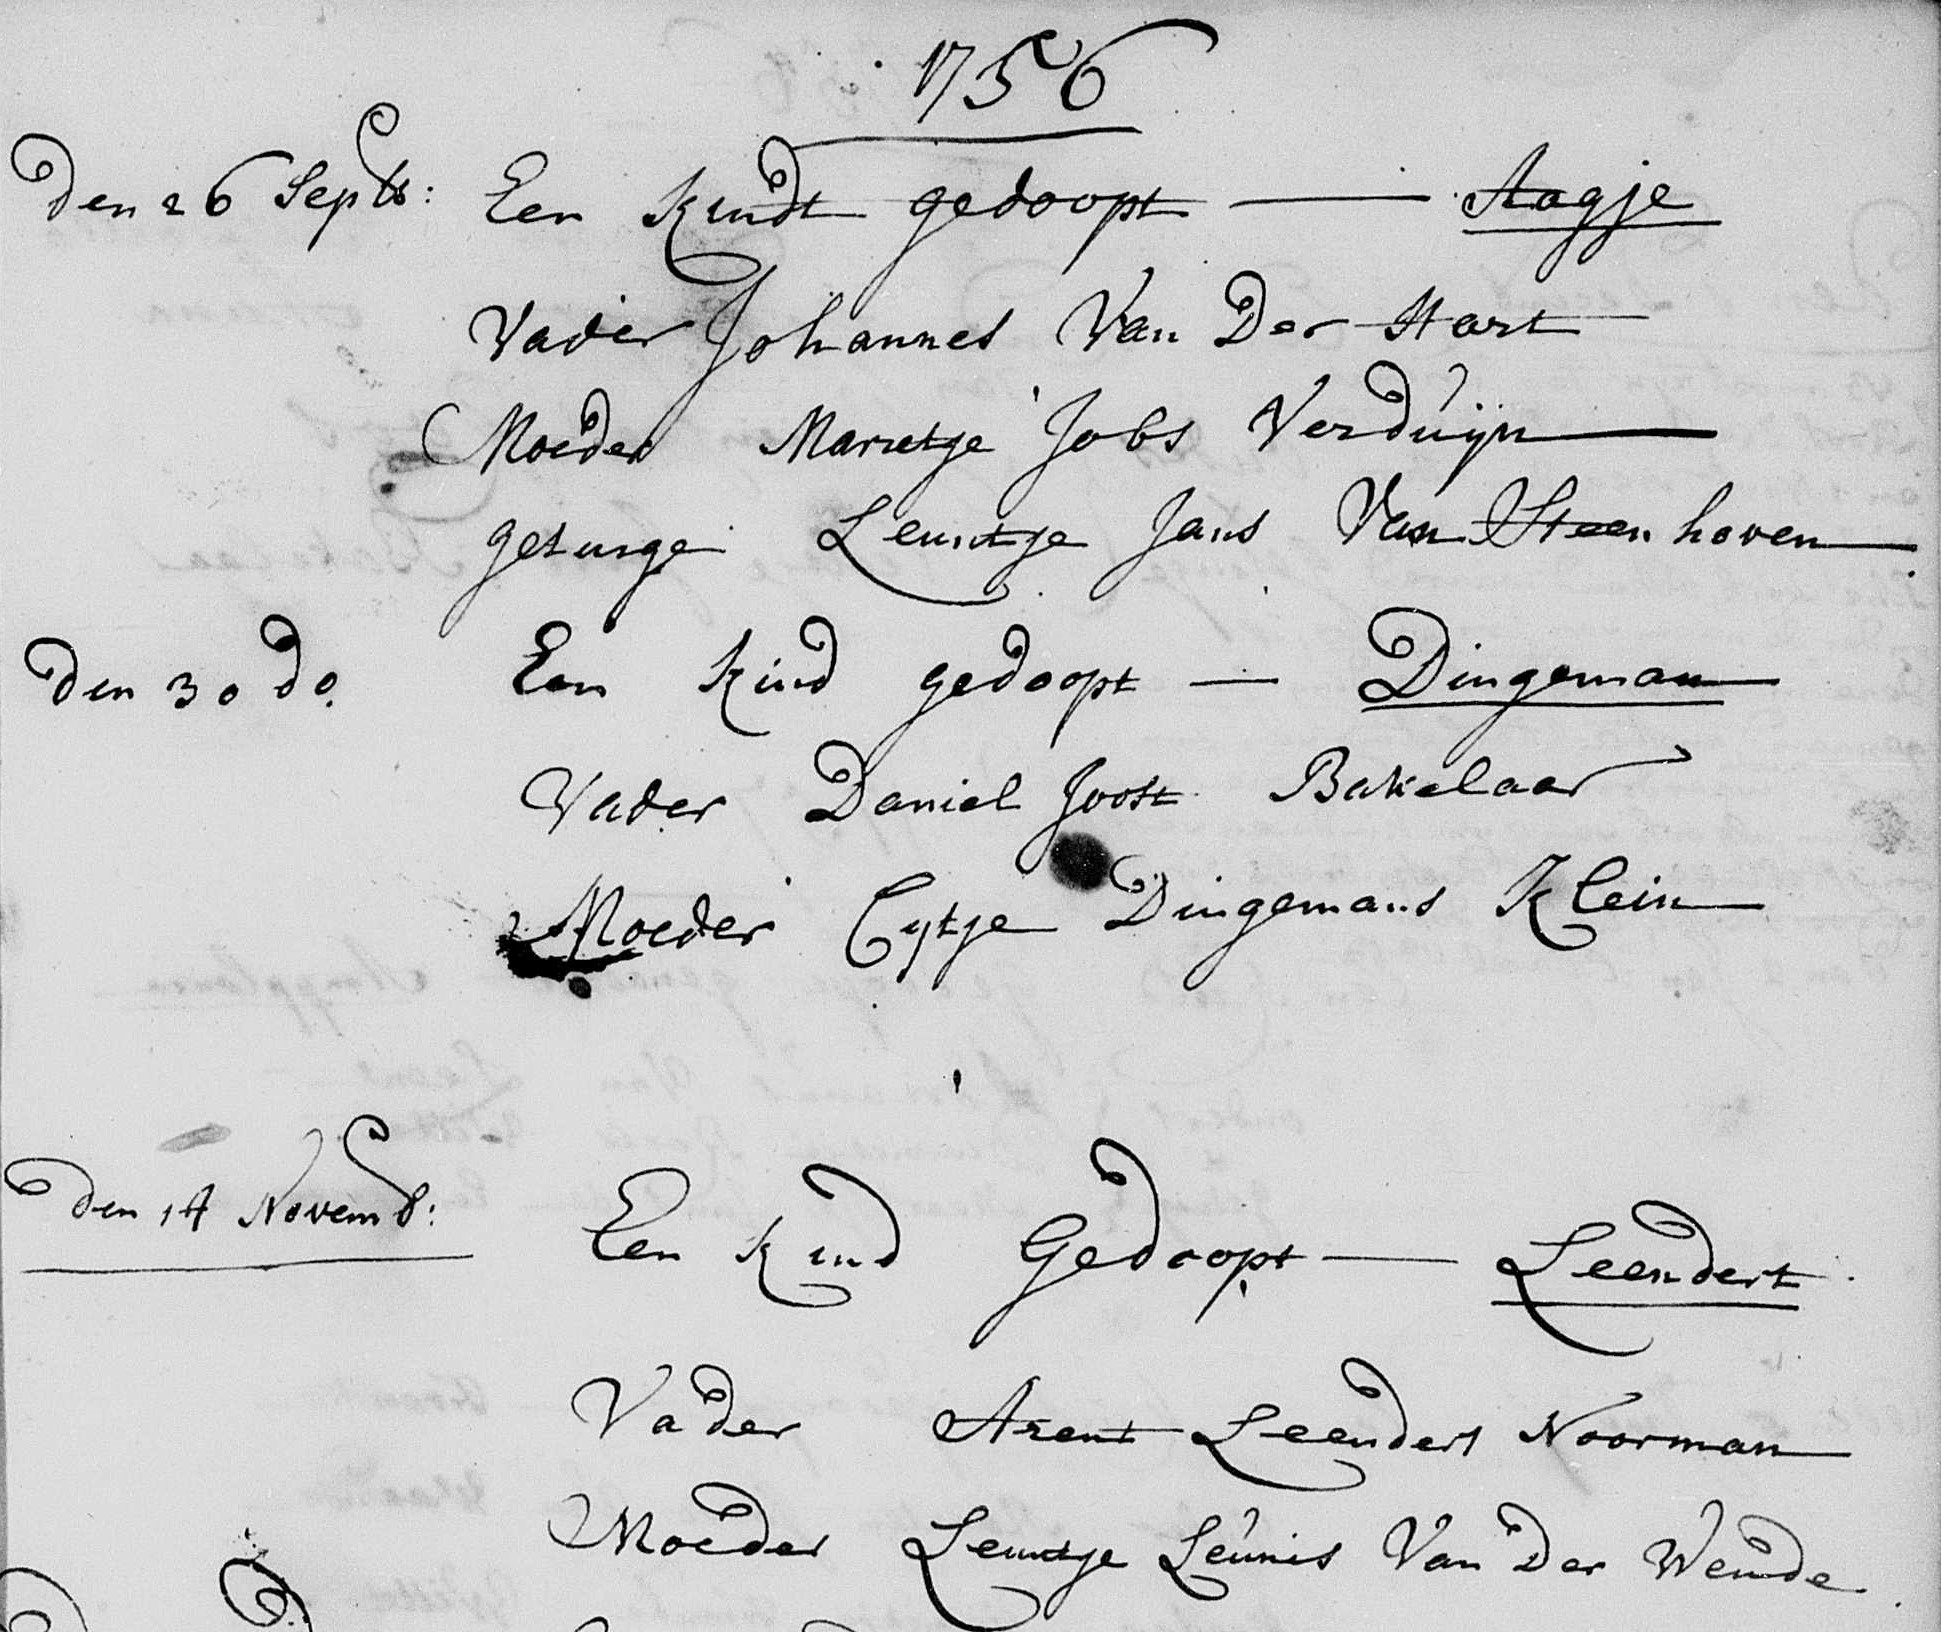 1756
Den 26 Septb: Een Kindt gedoopt — Aagje
Vader Johannes Van Der Hart
Moeder Marietje Jobs Verduijn
getuige Leuntje Jans Van Steenhoven
Den 30 do. Een Kind gedoopt — Dingeman
Vader Daniel Joost Bakelaar
Moeder Cytje Dingemans Klein
Den 14 Novemb: Een Kind Gedoopt — Leendert
Vader Arent Leendert Noorman
Moeder Leuntje Leúnis Van Der Weude